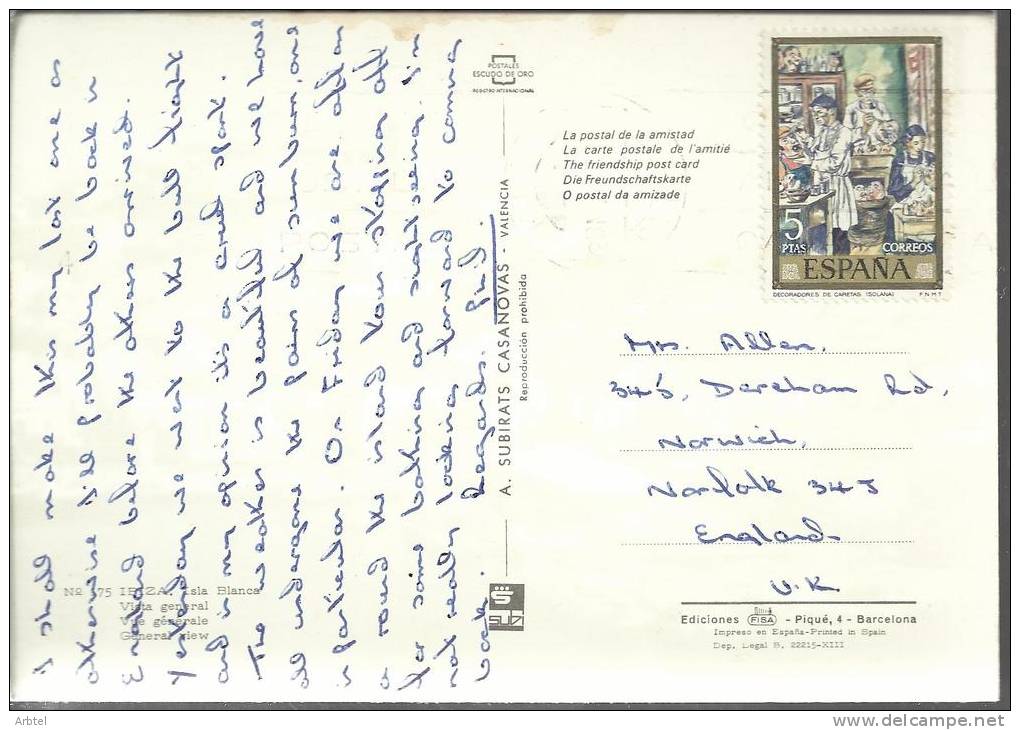 I shall make this my last one as
otherwise I'll probably be back in
England before the others arrived.
Yesterday we went to the bull fight
and in my opinion it's a cruel sport.
The weather is beautiful and we have
all undergone the pains of sunburn, one
in particular. On Friday we are off on
a round the island tour stopping off
for some bathing and sight seeing. I'm
not really looking forward to coming
back. Regards. Phil
POSTALES
ESCUDO DE ORO
REGISTRO INTERNACIONAL
La postal de la amistad
La carte postale de l'amitié
The friendship post card
Die Freundschaftskarte
O postal da amizade
A. SUBIRATS CASANOVAS - VALENCIA
Reproducción prohibida
SUBI
5
PTAS CORREOS
ESPAÑA
DECORADORES DE CARETAS (SOLANA) F.N.M.T.
Mrs. Allen,
345, Dereham Rd,
Norwich,
Norfolk 34J
England
U.K
Nº 175 IBIZA. Isla Blanca
Vista general
Vue générale
General view
Ediciones FISA - Piqué, 4 - Barcelona
Impreso en España-Printed in Spain
Dep. Legal B. 22215-XIII
Arbtel
www.delcampe.net